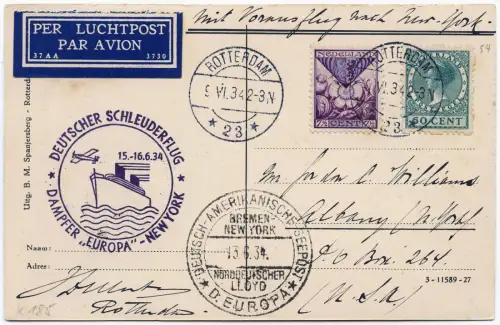 PER LUCHTPOST
PAR AVION
37AA 3730
Mit Vorausflug nach New-York
54
ROTTERDAM
9 VI.34 2-3N
★ 23 ★
NEDERLAND
7½ CENT
ROTTERDAM
VI.34 2-3N
23
60 CENT
DEUTSCHER SCHLEUDERFLUG
15.-16.6.34
★ DAMPFER „EUROPA“ - NEWYORK ★
DEUTSCH-AMERIKANISCHE SEEPOST
BREMEN-
NEW YORK
13.6.34.
NORDDEUTSCHER
LLOYD
★ D. EUROPA ★
Williams
Albany (N. York)
P O Box 264.
(U.S.A)
Uitg. B. M. Spanjersberg - Rotterdam
Naam:
Adres:
3 - 11589 - 27
Rotterdam
K 185